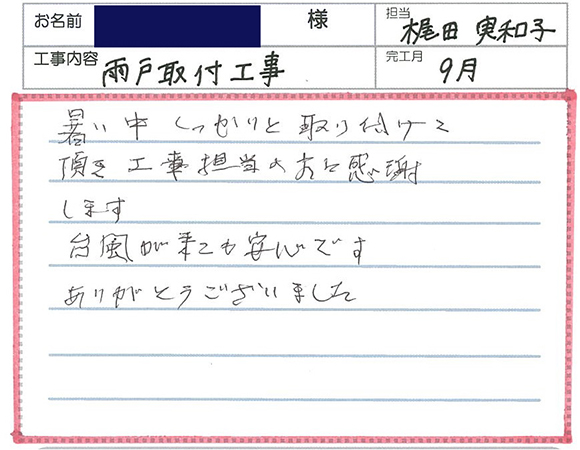 お名前 様 担当 梶田 実和子
工事内容 雨戸取付工事 完工月 9月
暑い中 しっかりと 取り付けて
頂き 工事担当の方に感謝
します
台風が来ても安心です
ありがとうございました